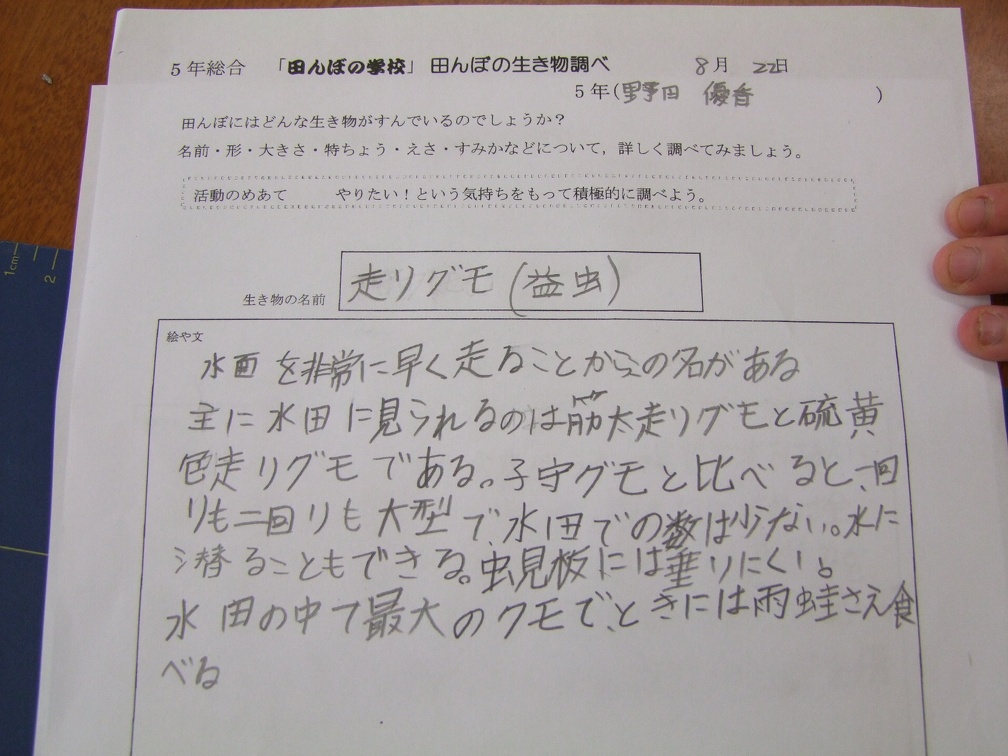 5年総合 「田んぼの学校」 田んぼの生き物調べ 8月 22日
5年(野田 優香 )
田んぼにはどんな生き物がすんでいるのでしょうか？
名前・形・大きさ・特ちょう・えさ・すみかなどについて，詳しく調べてみましょう。
活動のめあて やりたい！という気持ちをもって積極的に調べよう。
生き物の名前 走リグモ(益虫)
絵や文
水面を非常に早く走ることからこの名がある
主に水田に見られるのは筋太走リグモと硫黄
色走リグモである。子守グモと比べると、一回
りも二回りも大型で、水田での数は少ない。水に
潜ることもできる。虫見板には乗りにくい。
水田の中で最大のクモで、ときには雨蛙さえ食
べる
1cm
2